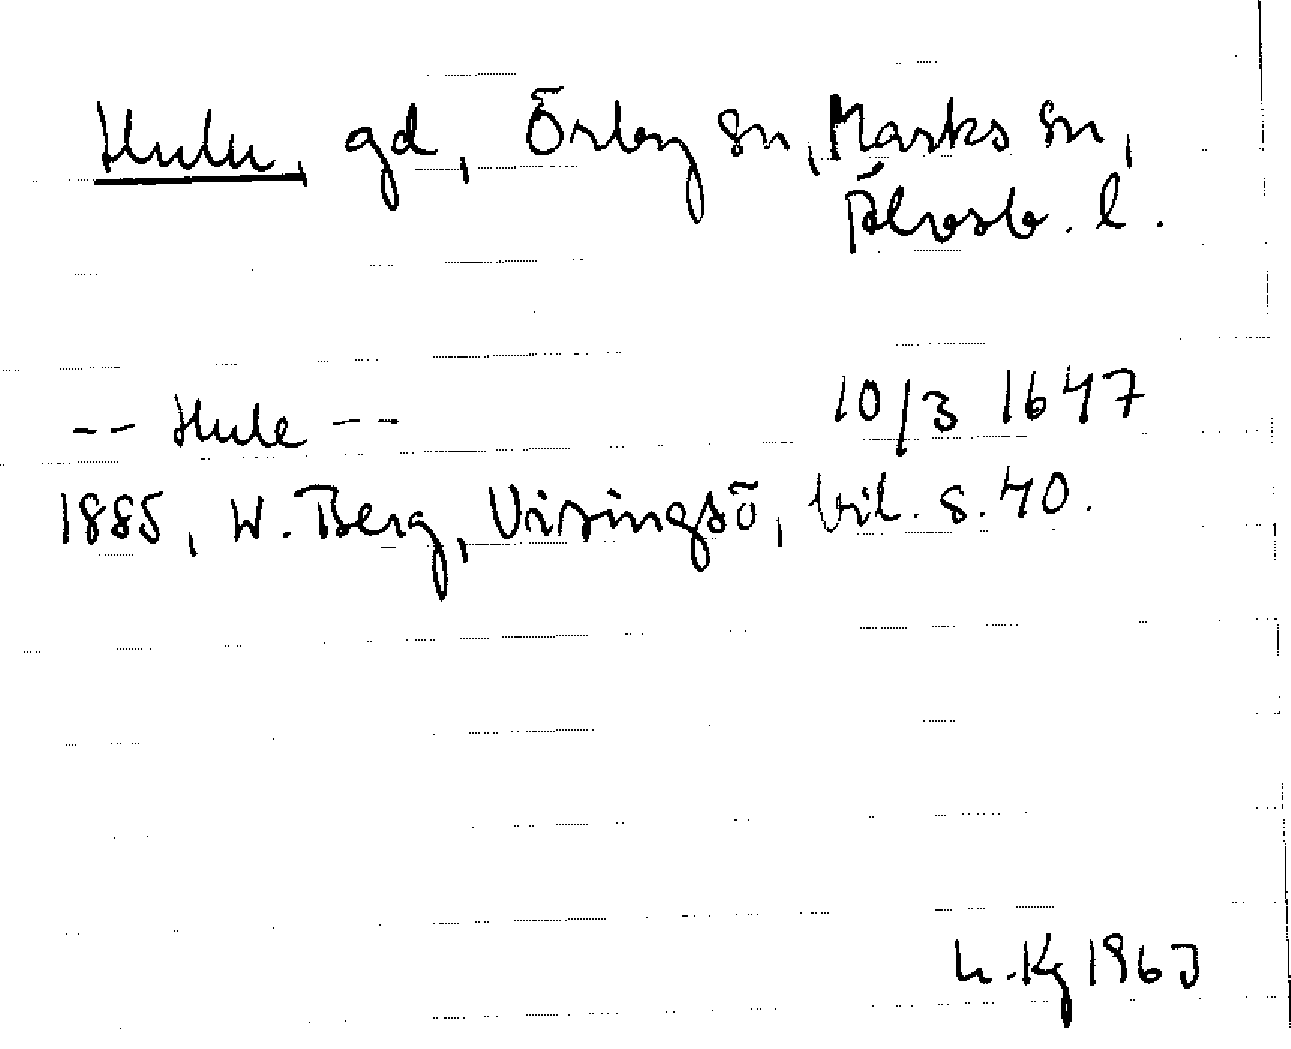 Hulu, gd, Örby sn, Marks sn,
Älvsb. l.
-- Hule -- 10/3 1647
1885, W. Berg, Visingsö, bil. s. 40.
L. Kg 1963